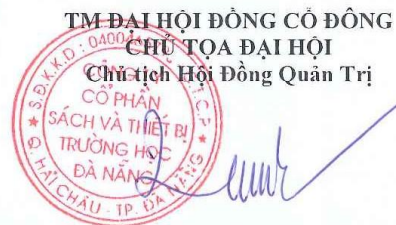 TM ĐẠI HỘI ĐỒNG CỔ ĐÔNG
CHỦ TỌA ĐẠI HỘI
Chủ tịch Hội Đồng Quản Trị
CỔ PHẦN
SÁCH VÀ THIẾT BỊ
TRƯỜNG HỌC
ĐÀ NẴNG
Q. HẢI CHÂU - TP. ĐÀ NẴNG